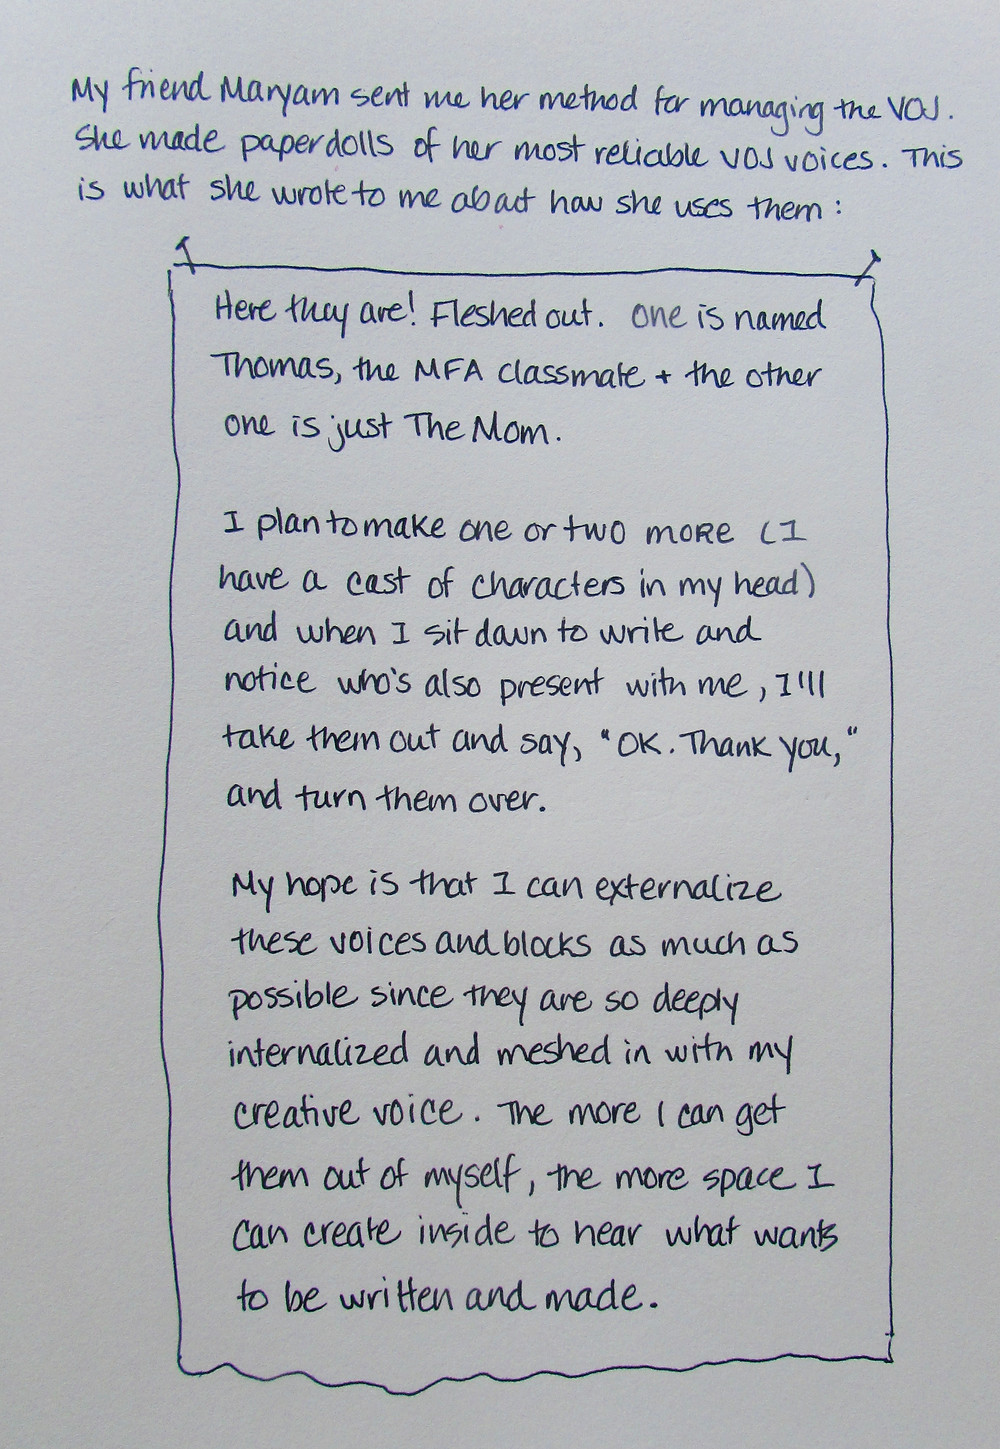 My friend Maryam sent me her method for managing the VOJ.
She made paperdolls of her most reliable VOJ voices. This
is what she wrote to me about how she uses them:
Here they are! Fleshed out. One is named
Thomas, the MFA classmate + the other
one is just The Mom.
I plan to make one or two more (I
have a cast of characters in my head)
and when I sit down to write and
notice who's also present with me, I'll
take them out and say, "OK. Thank you,"
and turn them over.
My hope is that I can externalize
these voices and blocks as much as
possible since they are so deeply
internalized and meshed in with my
creative voice. The more I can get
them out of myself, the more space I
can create inside to hear what wants
to be written and made.